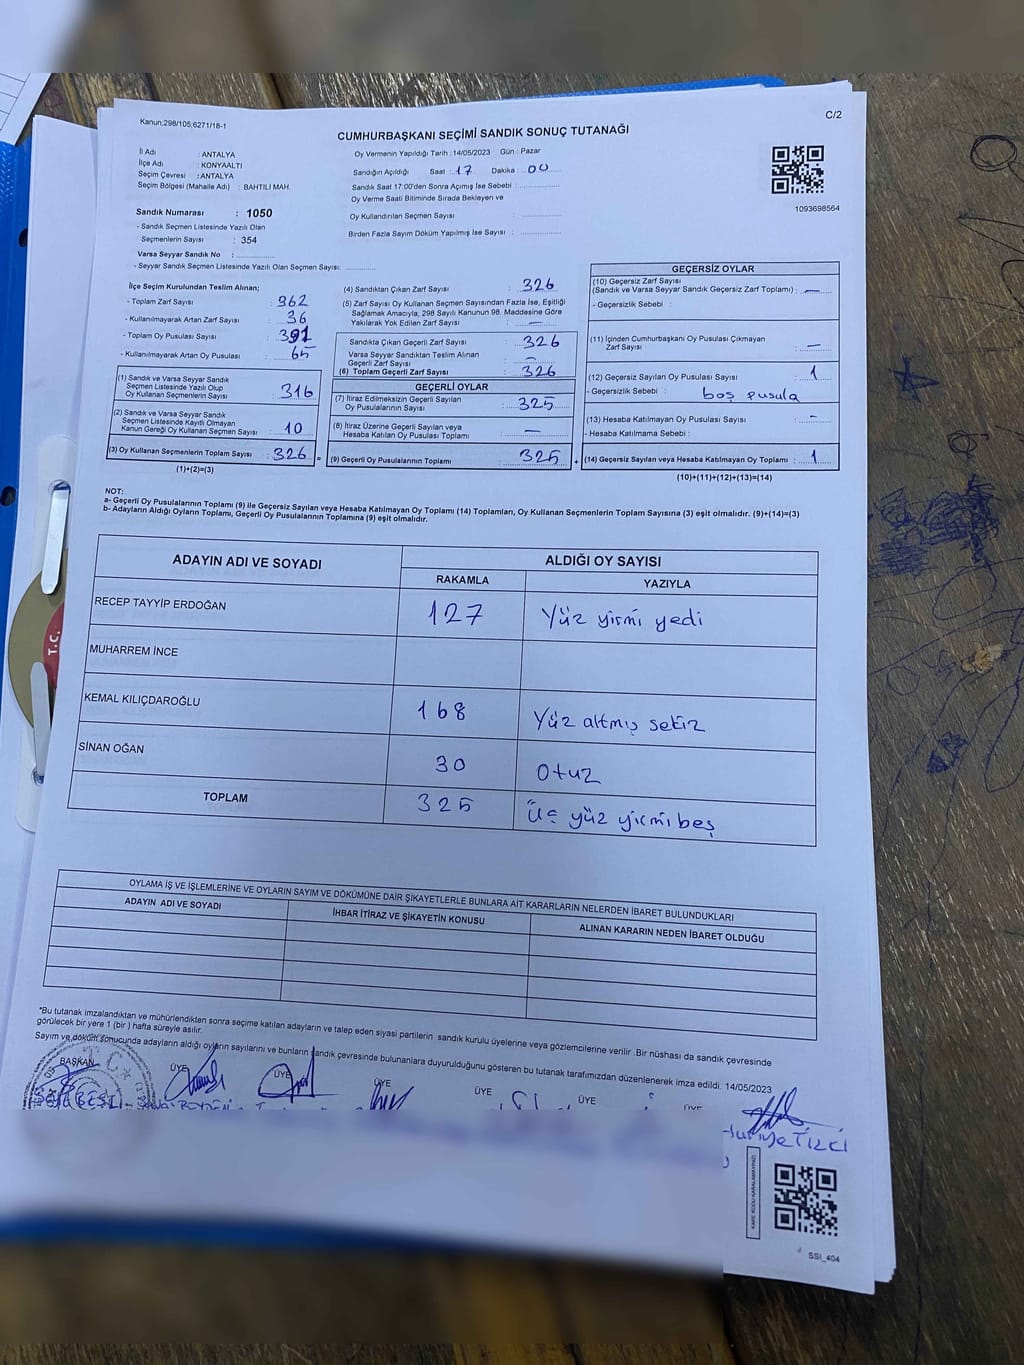 Kanun;298/105;6271/18-1
C/2
CUMHURBAŞKANI SEÇİMİ SANDIK SONUÇ TUTANAĞI
İl Adı : ANTALYA
İlçe Adı : KONYAALTI
Seçim Çevresi : ANTALYA
Seçim Bölgesi (Mahalle Adı) : BAHTILI MAH.
Sandık Numarası : 1050
- Sandık Seçmen Listesinde Yazılı Olan
Seçmenlerin Sayısı : 354
Varsa Seyyar Sandık No : ..............
- Seyyar Sandık Seçmen Listesinde Yazılı Olan Seçmen Sayısı: ............
Oy Vermenin Yapıldığı Tarih : 14/05/2023 Gün : Pazar
Sandığın Açıldığı Saat : 17 Dakika : 00
Sandık Saat 17:00'den Sonra Açımış İse Sebebi : ..............
Oy Verme Saati Bitiminde Sırada Bekleyen ve
Oy Kullandırılan Seçmen Sayısı : ..............
Birden Fazla Sayım Döküm Yapılmış İse Sayısı : ..............
1093698564
İlçe Seçim Kurulundan Teslim Alınan;
- Toplam Zarf Sayısı : 362
- Kullanılmayarak Artan Zarf Sayısı : 36
- Toplam Oy Pusulası Sayısı : 391
- Kullanılmayarak Artan Oy Pusulası : 65
(1) Sandık ve Varsa Seyyar Sandık
Seçmen Listesinde Yazılı Olup
Oy Kullanan Seçmenlerin Sayısı : 316
(2) Sandık ve Varsa Seyyar Sandık
Seçmen Listesinde Kayıtlı Olmayan
Kanun Gereği Oy Kullanan Seçmen Sayısı : 10
(3) Oy Kullanan Seçmenlerin Toplam Sayısı : 326
(1)+(2)=(3)
(4) Sandıktan Çıkan Zarf Sayısı : 326
(5) Zarf Sayısı Oy Kullanan Seçmen Sayısından Fazla İse, Eşitliği
Sağlamak Amacıyla, 298 Sayılı Kanunun 98. Maddesine Göre
Yakılarak Yok Edilen Zarf Sayısı : —
Sandıkta Çıkan Geçerli Zarf Sayısı : 326
Varsa Seyyar Sandıktan Teslim Alınan
Geçerli Zarf Sayısı : —
(6) Toplam Geçerli Zarf Sayısı : 326
GEÇERLİ OYLAR
(7) İtiraz Edilmeksizin Geçerli Sayılan
Oy Pusulalarının Sayısı : 325
(8) İtiraz Üzerine Geçerli Sayılan veya
Hesaba Katılan Oy Pusulası Toplamı : —
= (9) Geçerli Oy Pusulalarının Toplamı : 325
GEÇERSİZ OYLAR
(10) Geçersiz Zarf Sayısı
(Sandık ve Varsa Seyyar Sandık Geçersiz Zarf Toplamı) : —
- Geçersizlik Sebebi :
(11) İçinden Cumhurbaşkanı Oy Pusulası Çıkmayan
Zarf Sayısı : —
(12) Geçersiz Sayılan Oy Pusulası Sayısı : 1
- Geçersizlik Sebebi : boş pusula
(13) Hesaba Katılmayan Oy Pusulası Sayısı : -
- Hesaba Katılmama Sebebi :
+ (14) Geçersiz Sayılan veya Hesaba Katılmayan Oy Toplamı : 1
(10)+(11)+(12)+(13)=(14)
NOT:
a- Geçerli Oy Pusulalarının Toplamı (9) ile Geçersiz Sayılan veya Hesaba Katılmayan Oy Toplamı (14) Toplamları, Oy Kullanan Seçmenlerin Toplam Sayısına (3) eşit olmalıdır. (9)+(14)=(3)
b- Adayların Aldığı Oyların Toplamı, Geçerli Oy Pusulalarının Toplamına (9) eşit olmalıdır.
ADAYIN ADI VE SOYADI ALDIĞI OY SAYISI
RAKAMLA YAZIYLA
RECEP TAYYİP ERDOĞAN 127 Yüz yirmi yedi
MUHARREM İNCE
KEMAL KILIÇDAROĞLU 168 Yüz altmış sekiz
SİNAN OĞAN 30 Otuz
TOPLAM 325 Üç yüz yirmi beş
OYLAMA İŞ VE İŞLEMLERİNE VE OYLARIN SAYIM VE DÖKÜMÜNE DAİR ŞİKAYETLERLE BUNLARA AİT KARARLARIN NELERDEN İBARET BULUNDUKLARI
ADAYIN ADI VE SOYADI İHBAR İTİRAZ VE ŞİKAYETİN KONUSU ALINAN KARARIN NEDEN İBARET OLDUĞU
*Bu tutanak imzalandıktan ve mühürlendikten sonra seçime katılan adayların ve talep eden siyasi partilerin sandık kurulu üyelerine veya gözlemcilerine verilir .Bir nüshası da sandık çevresinde
görülecek bir yere 1 (bir ) hafta süreyle asılır.
Sayım ve döküm sonucunda adayların aldığı oyların sayılarını ve bunların sandık çevresinde bulunanlara duyurulduğunu gösteren bu tutanak tarafımızdan düzenlenerek imza edildi. 14/05/2023
BAŞKAN ÜYE ÜYE ÜYE ÜYE ÜYE ÜYE
KARE KODU KARALAMAYINIZ
SSI_404
T.C.